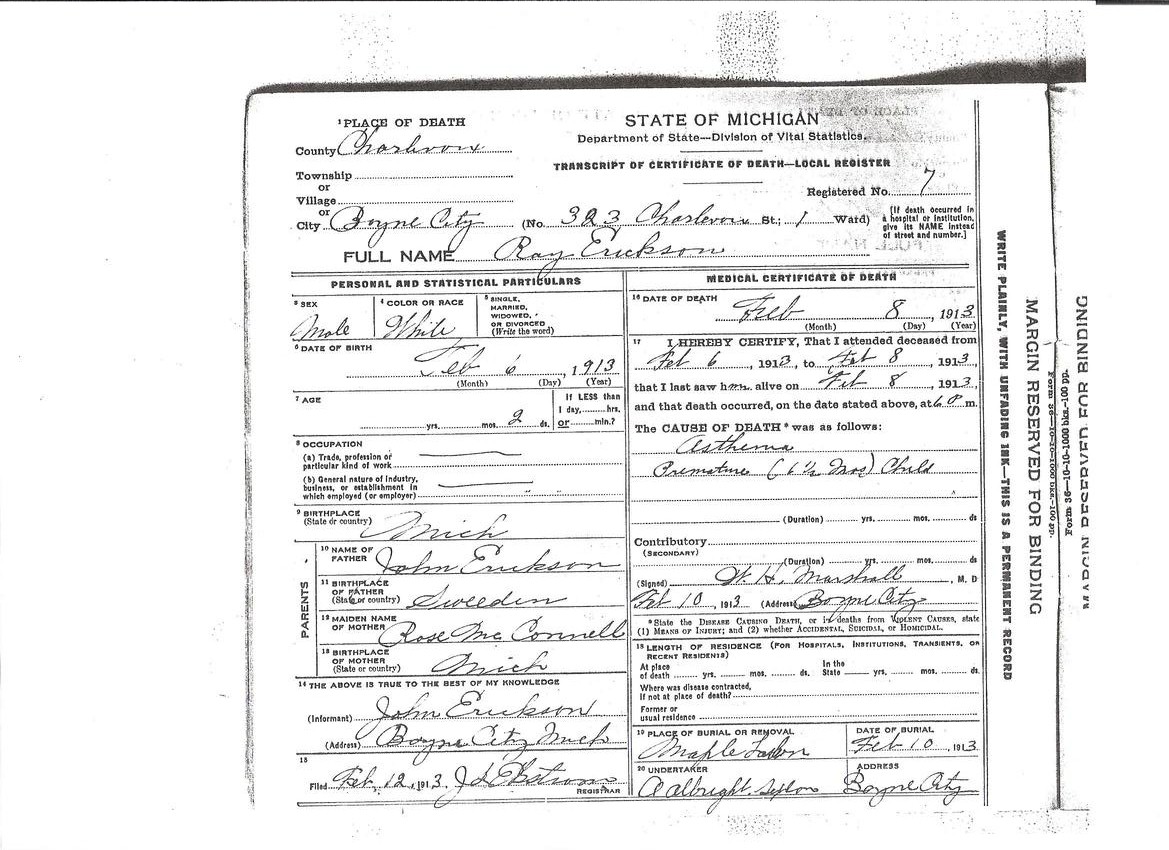 STATE OF MICHIGAN
Department of State—Division of Vital Statistics.
TRANSCRIPT OF CERTIFICATE OF DEATH—LOCAL REGISTER
Registered No. 7
1 PLACE OF DEATH
County Charlevoix
Township
or
Village
or
City Boyne City (No. 323 Charlevoix St.; 1 Ward)
[If death occurred in
a hospital or institution,
give its NAME instead
of street and number.]
FULL NAME Ray Erickson
PERSONAL AND STATISTICAL PARTICULARS
3 SEX
Male
4 COLOR OR RACE
White
5 SINGLE,
MARRIED,
WIDOWED,
OR DIVORCED
(Write the word)
6 DATE OF BIRTH
Feb 6, 1913
(Month) (Day) (Year)
7 AGE
yrs. mos. 2 ds.
If LESS than
1 day, hrs.
or min.?
8 OCCUPATION
(a) Trade, profession or
particular kind of work
(b) General nature of industry,
business, or establishment in
which employed (or employer)
9 BIRTHPLACE
(State or country)
Mich
PARENTS
10 NAME OF
FATHER
John Erickson
11 BIRTHPLACE
OF FATHER
(State or country)
Sweeden
12 MAIDEN NAME
OF MOTHER
Rose McConnell
13 BIRTHPLACE
OF MOTHER
(State or country)
Mich
14 THE ABOVE IS TRUE TO THE BEST OF MY KNOWLEDGE
(Informant) John Erickson
(Address) Boyne City Mich
15
Filed Feb. 12, 1913. J. L. Ekstrom
REGISTRAR
MEDICAL CERTIFICATE OF DEATH
16 DATE OF DEATH
Feb 8, 1913
(Month) (Day) (Year)
17 I HEREBY CERTIFY, That I attended deceased from
Feb 6, 1913, to Feb 8, 1913,
that I last saw him alive on Feb 8, 1913,
and that death occurred, on the date stated above, at 6 P m.
The CAUSE OF DEATH* was as follows:
Asthema
Premature (6 1/2 Mos) Child
(Duration) yrs. mos. ds
Contributory
(SECONDARY)
(Duration) yrs. mos. ds
(Signed) W. H. Marshall, M. D
Feb 10, 1913 (Address) Boyne City
*State the DISEASE CAUSING DEATH, or in deaths from VIOLENT CAUSES, state
(1) MEANS OF INJURY; and (2) whether ACCIDENTAL, SUICIDAL, or HOMICIDAL.
18 LENGTH OF RESIDENCE (FOR HOSPITALS, INSTITUTIONS, TRANSIENTS, OR
RECENT RESIDENTS)
At place
of death yrs. mos. ds.
In the
State yrs. mos. ds
Where was disease contracted,
if not at place of death?
Former or
usual residence
19 PLACE OF BURIAL OR REMOVAL
Maple Lawn
DATE OF BURIAL
Feb 10, 1913
20 UNDERTAKER
Albright Sexton
ADDRESS
Boyne City
WRITE PLAINLY, WITH UNFADING INK—THIS IS A PERMANENT RECORD
MARGIN RESERVED FOR BINDING
Form 36—10-10-1000 bks.-100 pp.
Form 36—10-10-1000 bks.-100 pp.
MARGIN RESERVED FOR BINDING